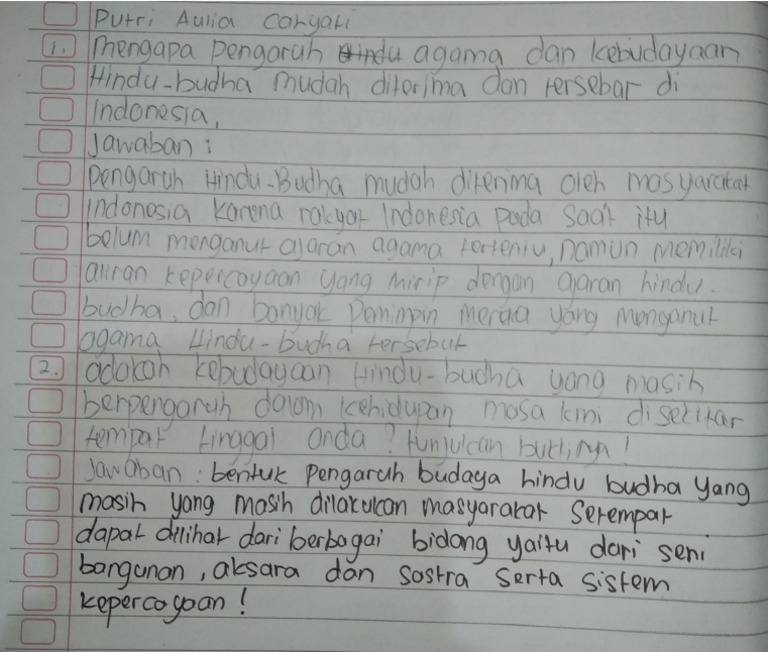 Putri Aulia Cahyati
1. Mengapa pengaruh agama dan kebudayaan
Hindu-budha mudah diterima dan tersebar di
Indonesia,
Jawaban :
Pengaruh Hindu-Budha mudah diterima oleh masyarakat
Indonesia karena rakyat Indonesia pada saat itu
belum menganut ajaran agama tertentu, namun memiliki
aliran kepercayaan yang mirip dengan ajaran hindu-
budha, dan banyak pemimpin mereka yang menganut
agama Hindu-budha tersebut
2. adakah kebudayaan Hindu-budha yang masih
berpengaruh dalam kehidupan masa kini disekitar
tempat tinggal anda ? tunjukan buktinya !
Jawaban : bentuk pengaruh budaya hindu budha yang
masih yang masih dilakukan masyarakat setempat
dapat dilihat dari berbagai bidang yaitu dari seni
bangunan, aksara dan sastra serta sistem
kepercayaan !